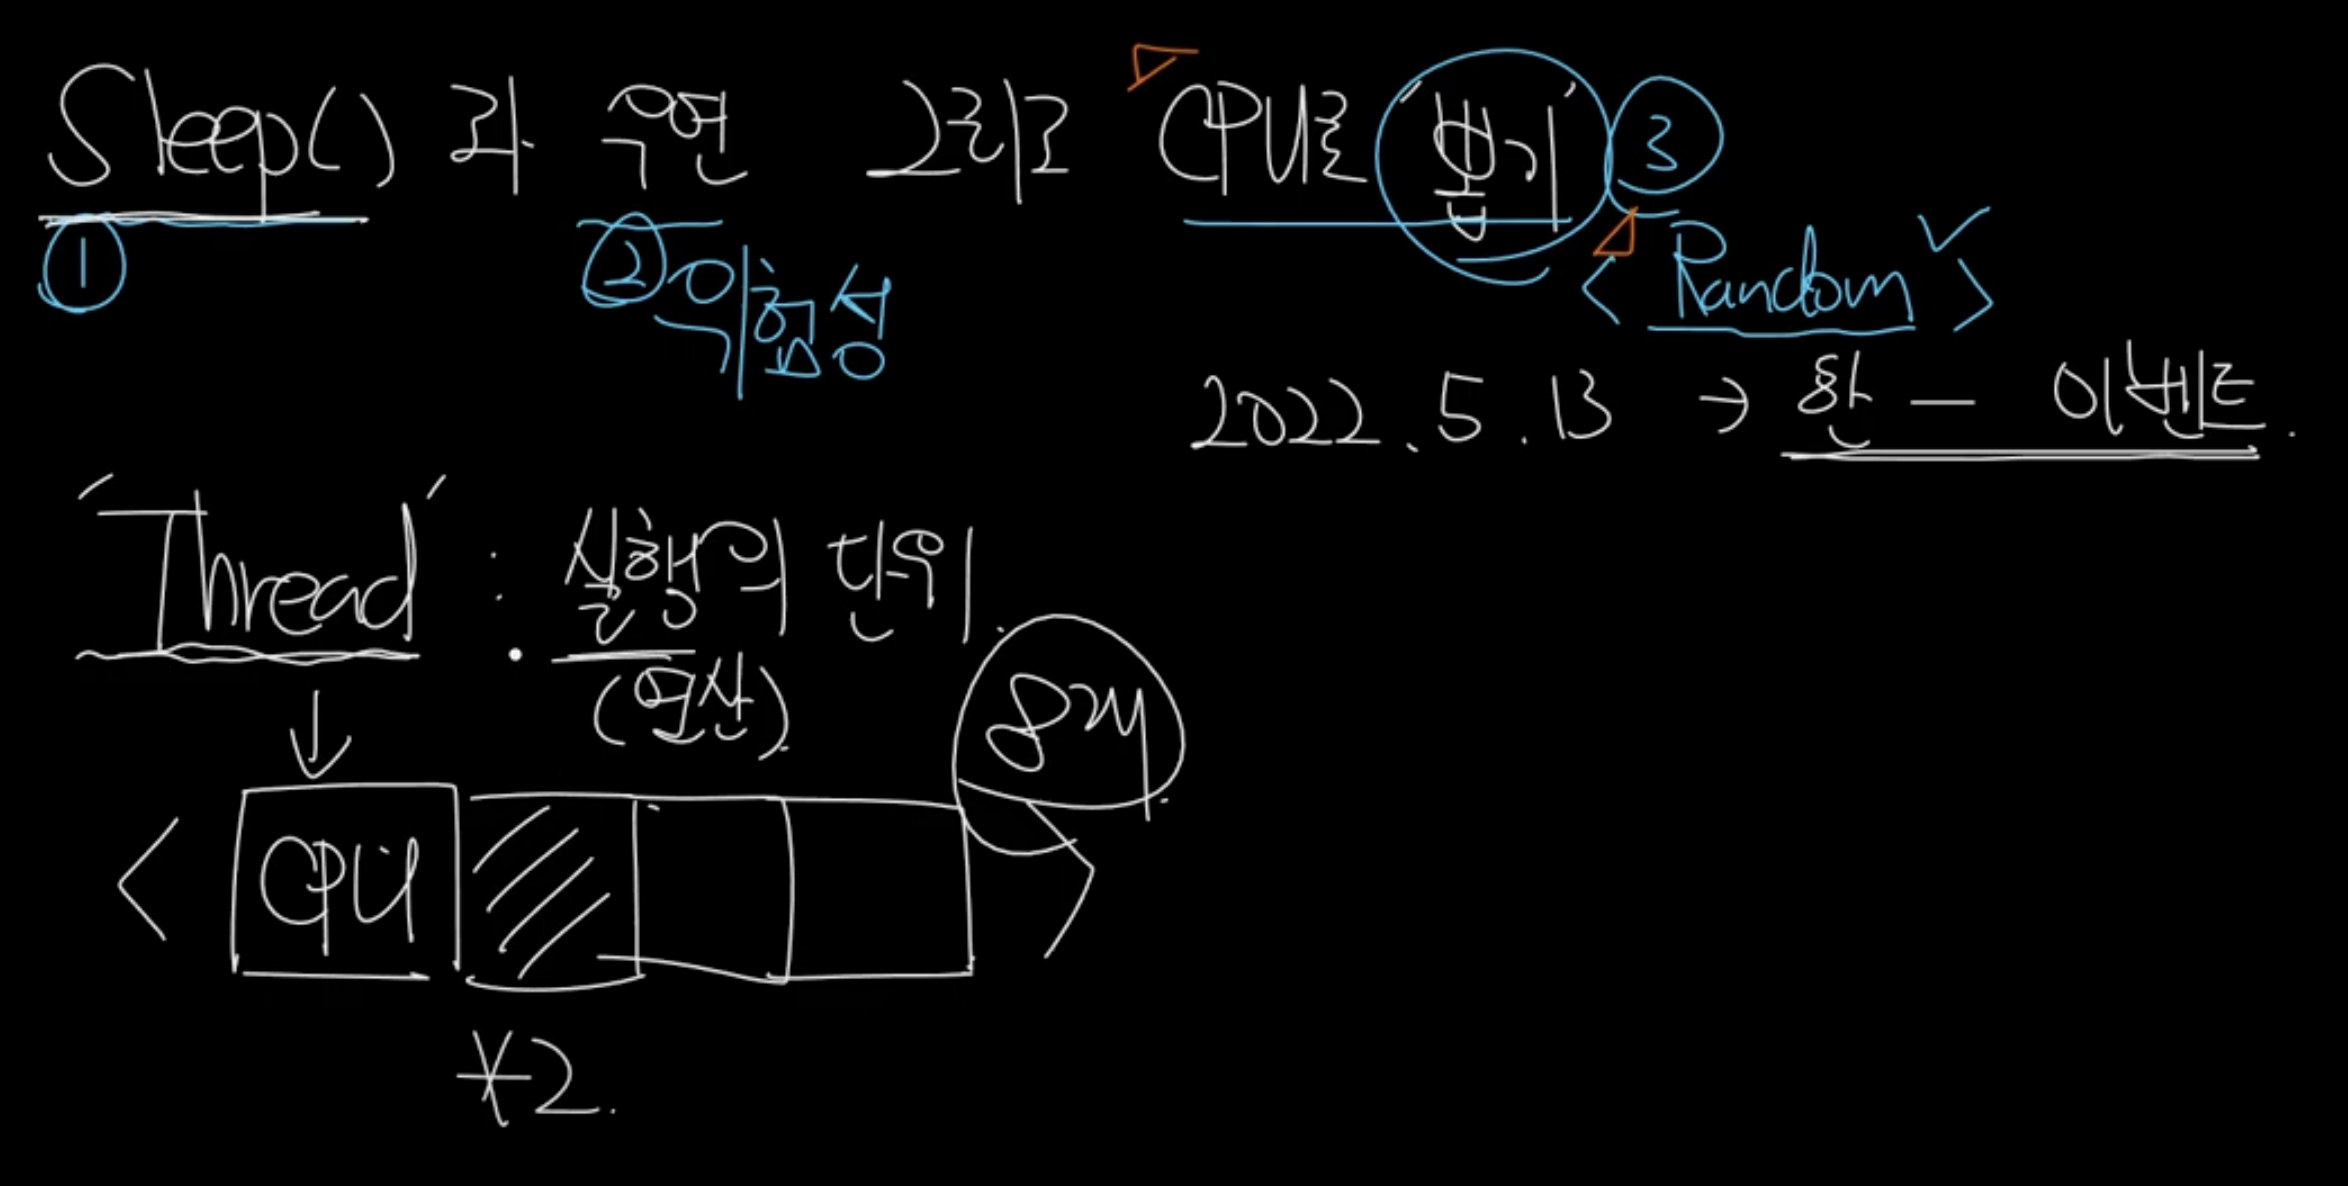 Sleep() 과 우연 그리고 CPU를 '뽑기' ③
① ② 위험성 < Random >
2022.5.13 → 한 — 이벤트.
'Thread' : 실행의 단위.
(연산).
8개
CPU
*2.